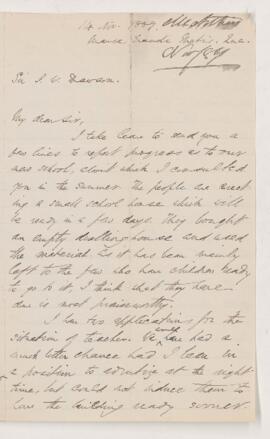 14 Nov. 1889.
Grande Mag
Sir J. W. Dawson.
My dear Sir,
I take leave to send you a
few lines to report progress as to our
new school, about which I consulted
you in the summer. The people are erect
ing a small school house which will
be ready in a few days. They bought
an empty dwelling house and used
the material. As it has been mainly
left to the few who have children ready
to go to it, I think that they have
done is most praiseworthy.
I have two applications for the
situation of teacher. We would have had a
much better chance had I been in
a position to advertise at the right
time, but could not induce them to
have the building ready sooner.